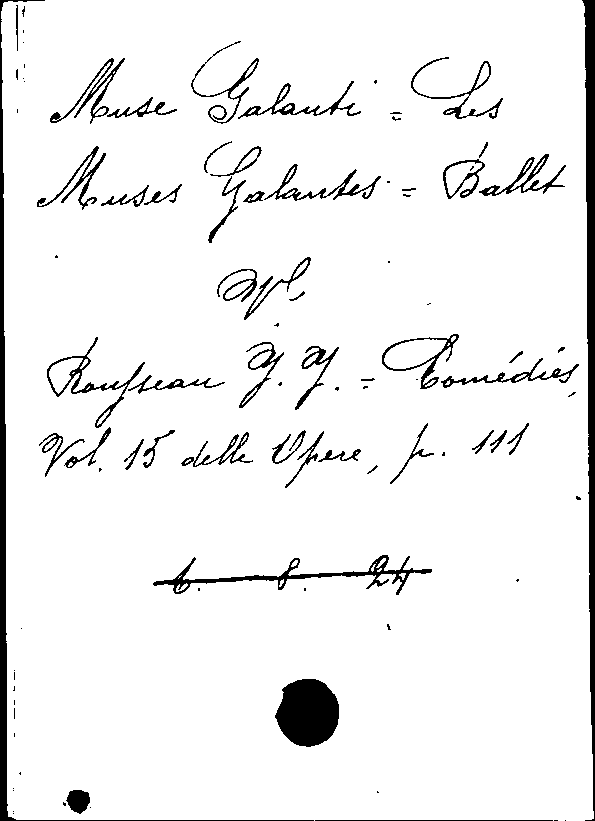 Muse Galanti = Les
Muses Galantes = Ballet
Rousseau J. J. = Comédies,
Vol. 15 delle Opere, p. 111
6. 8. 24